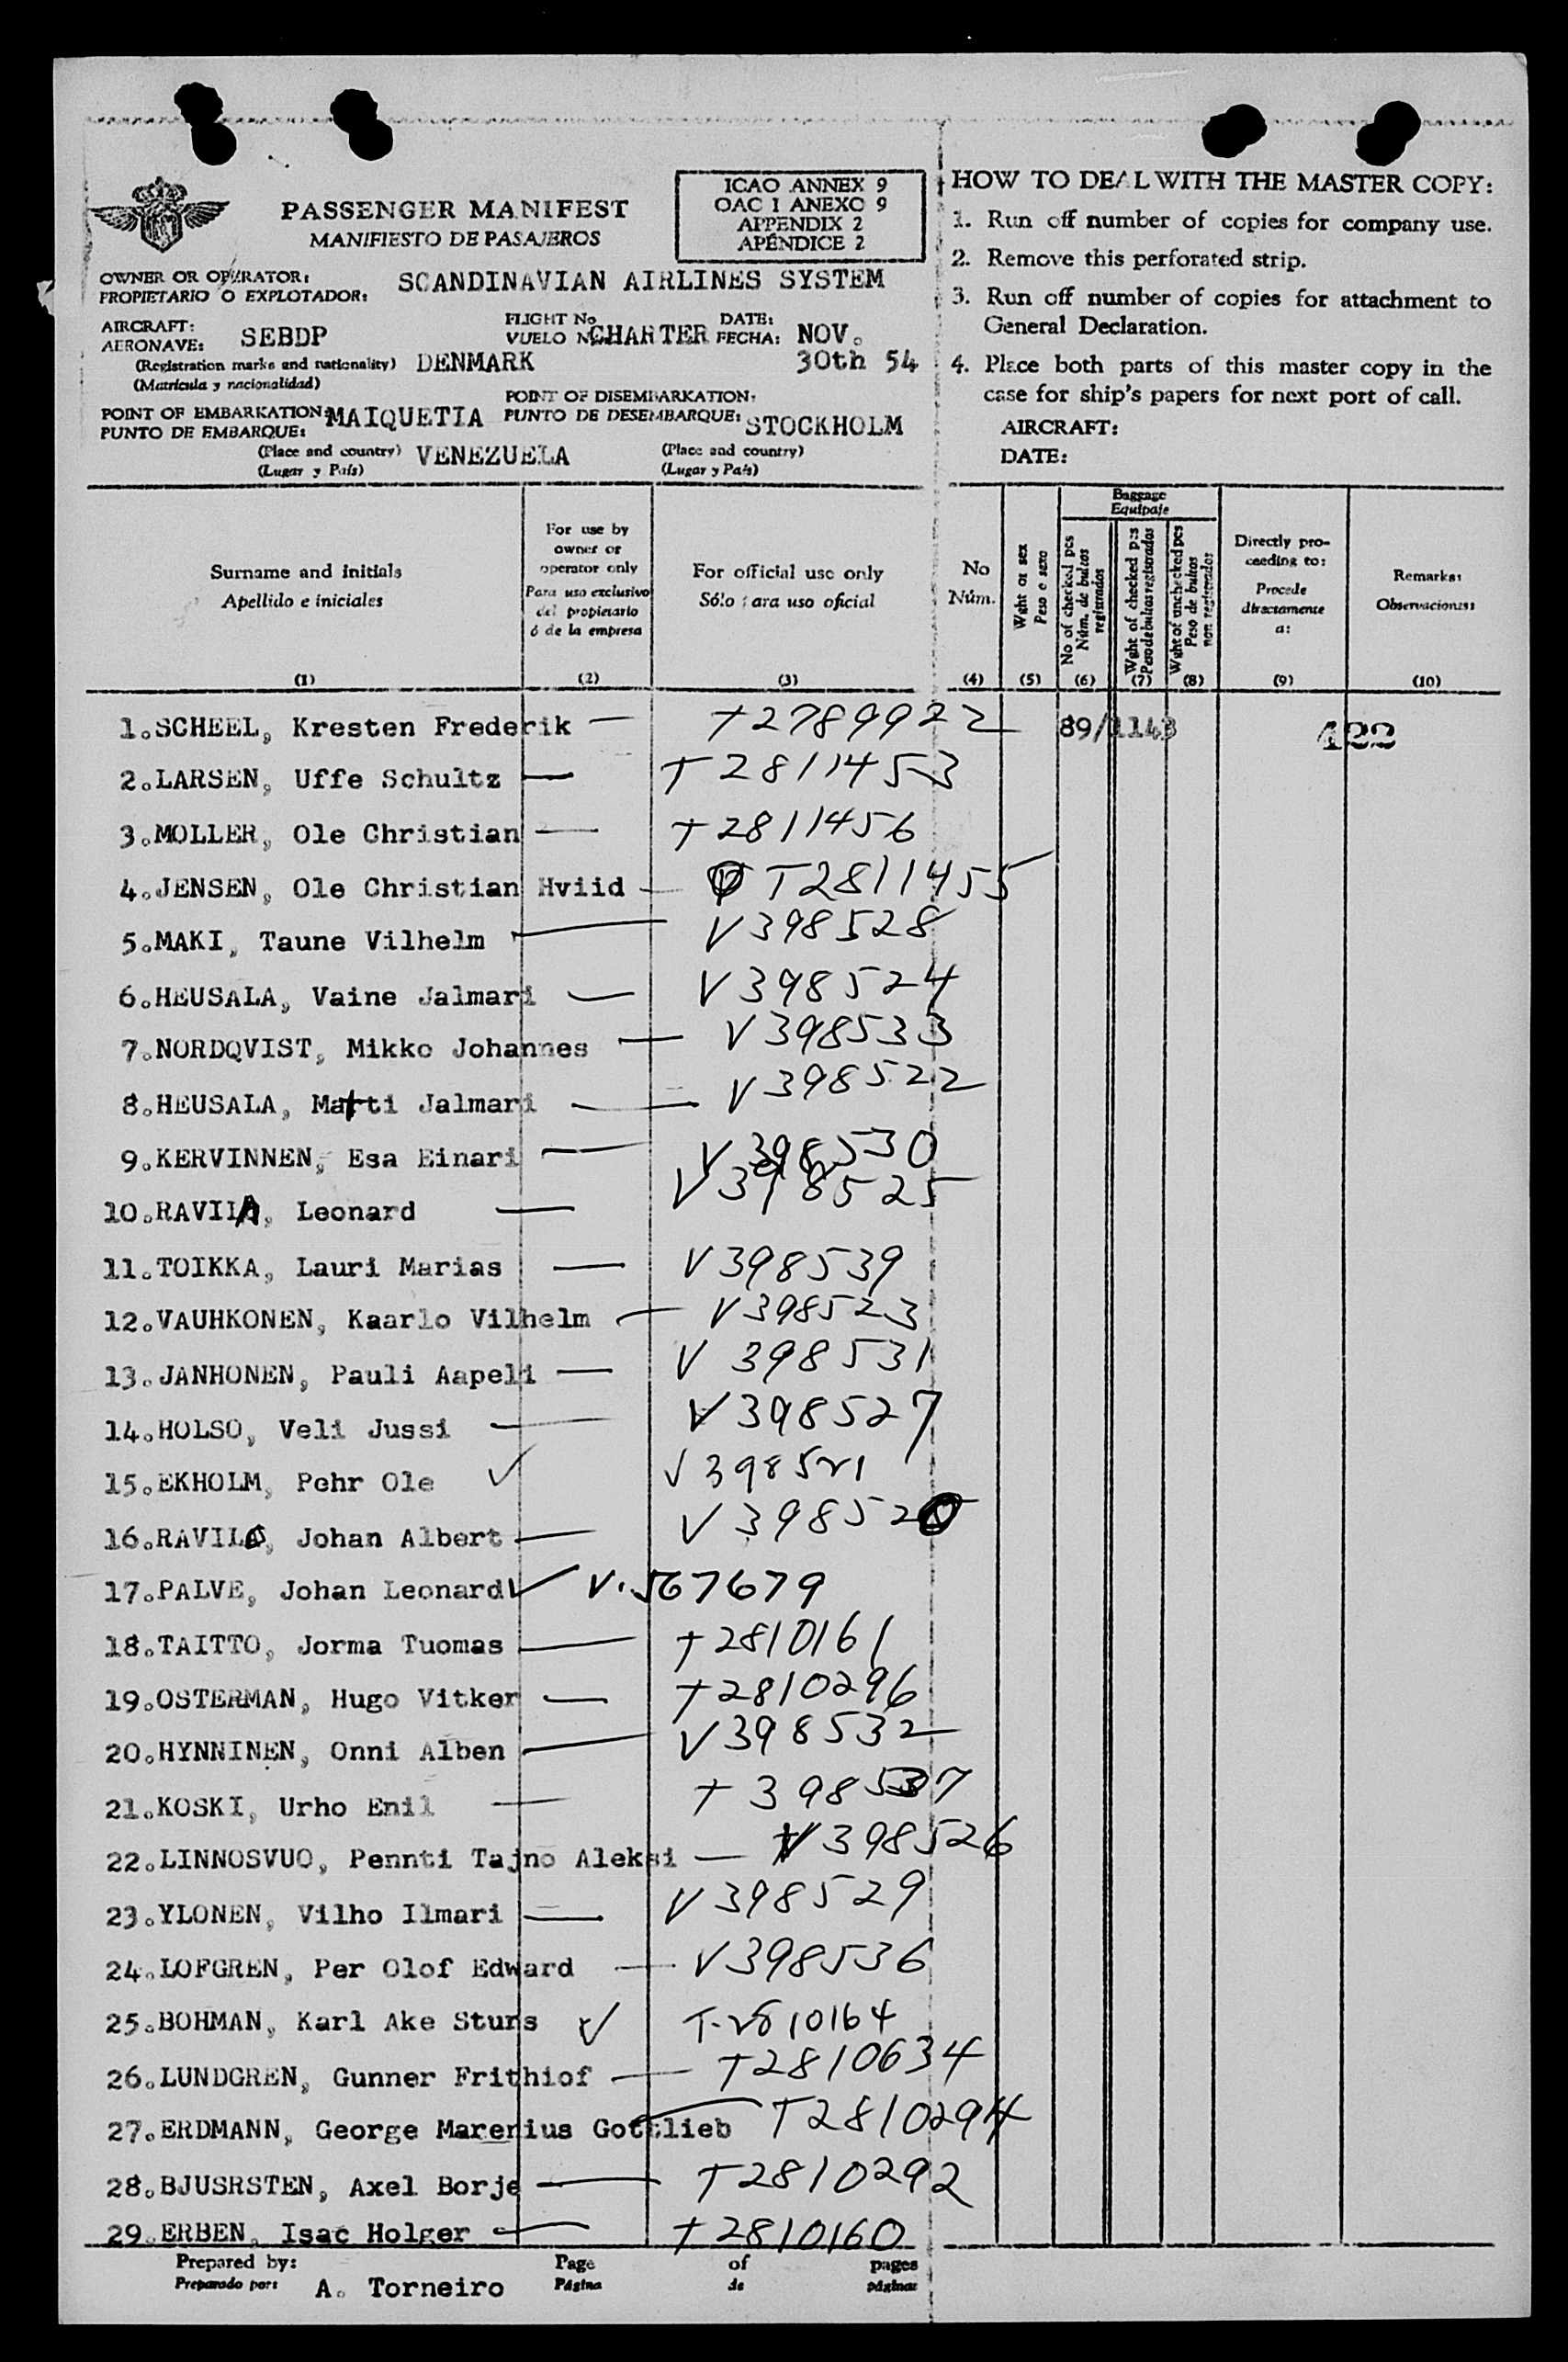 PASSENGER MANIFEST
MANIFIESTO DE PASAJEROS
ICAO ANNEX 9
OACI ANEXO 9
APPENDIX 2
APÉNDICE 2
OWNER OR OPERATOR:
PROPIETARIO O EXPLOTADOR:
SCANDINAVIAN AIRLINES SYSTEM
AIRCRAFT:
AERONAVE:
SEBDP
FLIGHT No
VUELO N
CHARTER
DATE:
FECHA:
NOV.
30th 54
(Registration marks and nationality)
(Matrícula y nacionalidad)
DENMARK
POINT OF EMBARKATION:
PUNTO DE EMBARQUE:
MAIQUETIA
POINT OF DISEMBARKATION:
PUNTO DE DESEMBARQUE:
STOCKHOLM
(Place and country)
(Lugar y País)
VENEZUELA
(Place and country)
(Lugar y País)
HOW TO DEAL WITH THE MASTER COPY:
1. Run off number of copies for company use.
2. Remove this perforated strip.
3. Run off number of copies for attachment to
General Declaration.
4. Place both parts of this master copy in the
case for ship's papers for next port of call.
AIRCRAFT:
DATE:
Surname and initials
Apellido e iniciales
(1)
For use by
owner or
operator only
Para uso exclusivo
del propietario
ó de la empresa
(2)
For official use only
Sólo para uso oficial
(3)
No
Núm.
(4)
Wght or sex
Peso o sexo
(5)
Baggage
Equipaje
No of checked pcs
Núm. de bultos
registrados
(6)
Wght of checked pcs
Peso de bultos registrados
(7)
Wght of unchecked pcs
Peso de bultos
non registrados
(8)
Directly pro-
ceeding to:
Procede
directamente
a:
(9)
Remarks:
Observaciones:
(10)
1. SCHEEL, Kresten Frederik — T2789922 89/1143 422
2. LARSEN, Uffe Schultz — T2811453
3. MOLLER, Ole Christian — T2811456
4. JENSEN, Ole Christian Hviid — T2811455
5. MAKI, Taune Vilhelm — V398528
6. HEUSALA, Vaine Jalmari — V398524
7. NORDQVIST, Mikko Johannes — V398533
8. HEUSALA, Matti Jalmari — V398522
9. KERVINNEN, Esa Einari — V398530
10. RAVILA, Leonard — V398525
11. TOIKKA, Lauri Marias — V398539
12. VAUHKONEN, Kaarlo Vilhelm — V398523
13. JANHONEN, Pauli Aapeli — V398531
14. HOLSO, Veli Jussi — V398527
15. EKHOLM, Pehr Ole ✓ V398521
16. RAVILA, Johan Albert — V398520
17. PALVE, Johan Leonard ✓ V.567679
18. TAITTO, Jorma Tuomas — T2810161
19. OSTERMAN, Hugo Vitker — T2810296
20. HYNNINEN, Onni Alben — V398532
21. KOSKI, Urho Enil — T398537
22. LINNOSVUO, Pennti Tajno Aleksi — V398526
23. YLONEN, Vilho Ilmari — V398529
24. LOFGREN, Per Olof Edward — V398536
25. BOHMAN, Karl Ake Sturs ✓ T-2810164
26. LUNDGREN, Gunner Frithiof — T2810634
27. ERDMANN, George Marenius Gottlieb — T2810294
28. BJUSRSTEN, Axel Borje — T2810292
29. ERBEN, Isac Holger — T2810160
Prepared by:
Preparado por:
A. Torneiro
Page
Página
of
de
pages
páginas